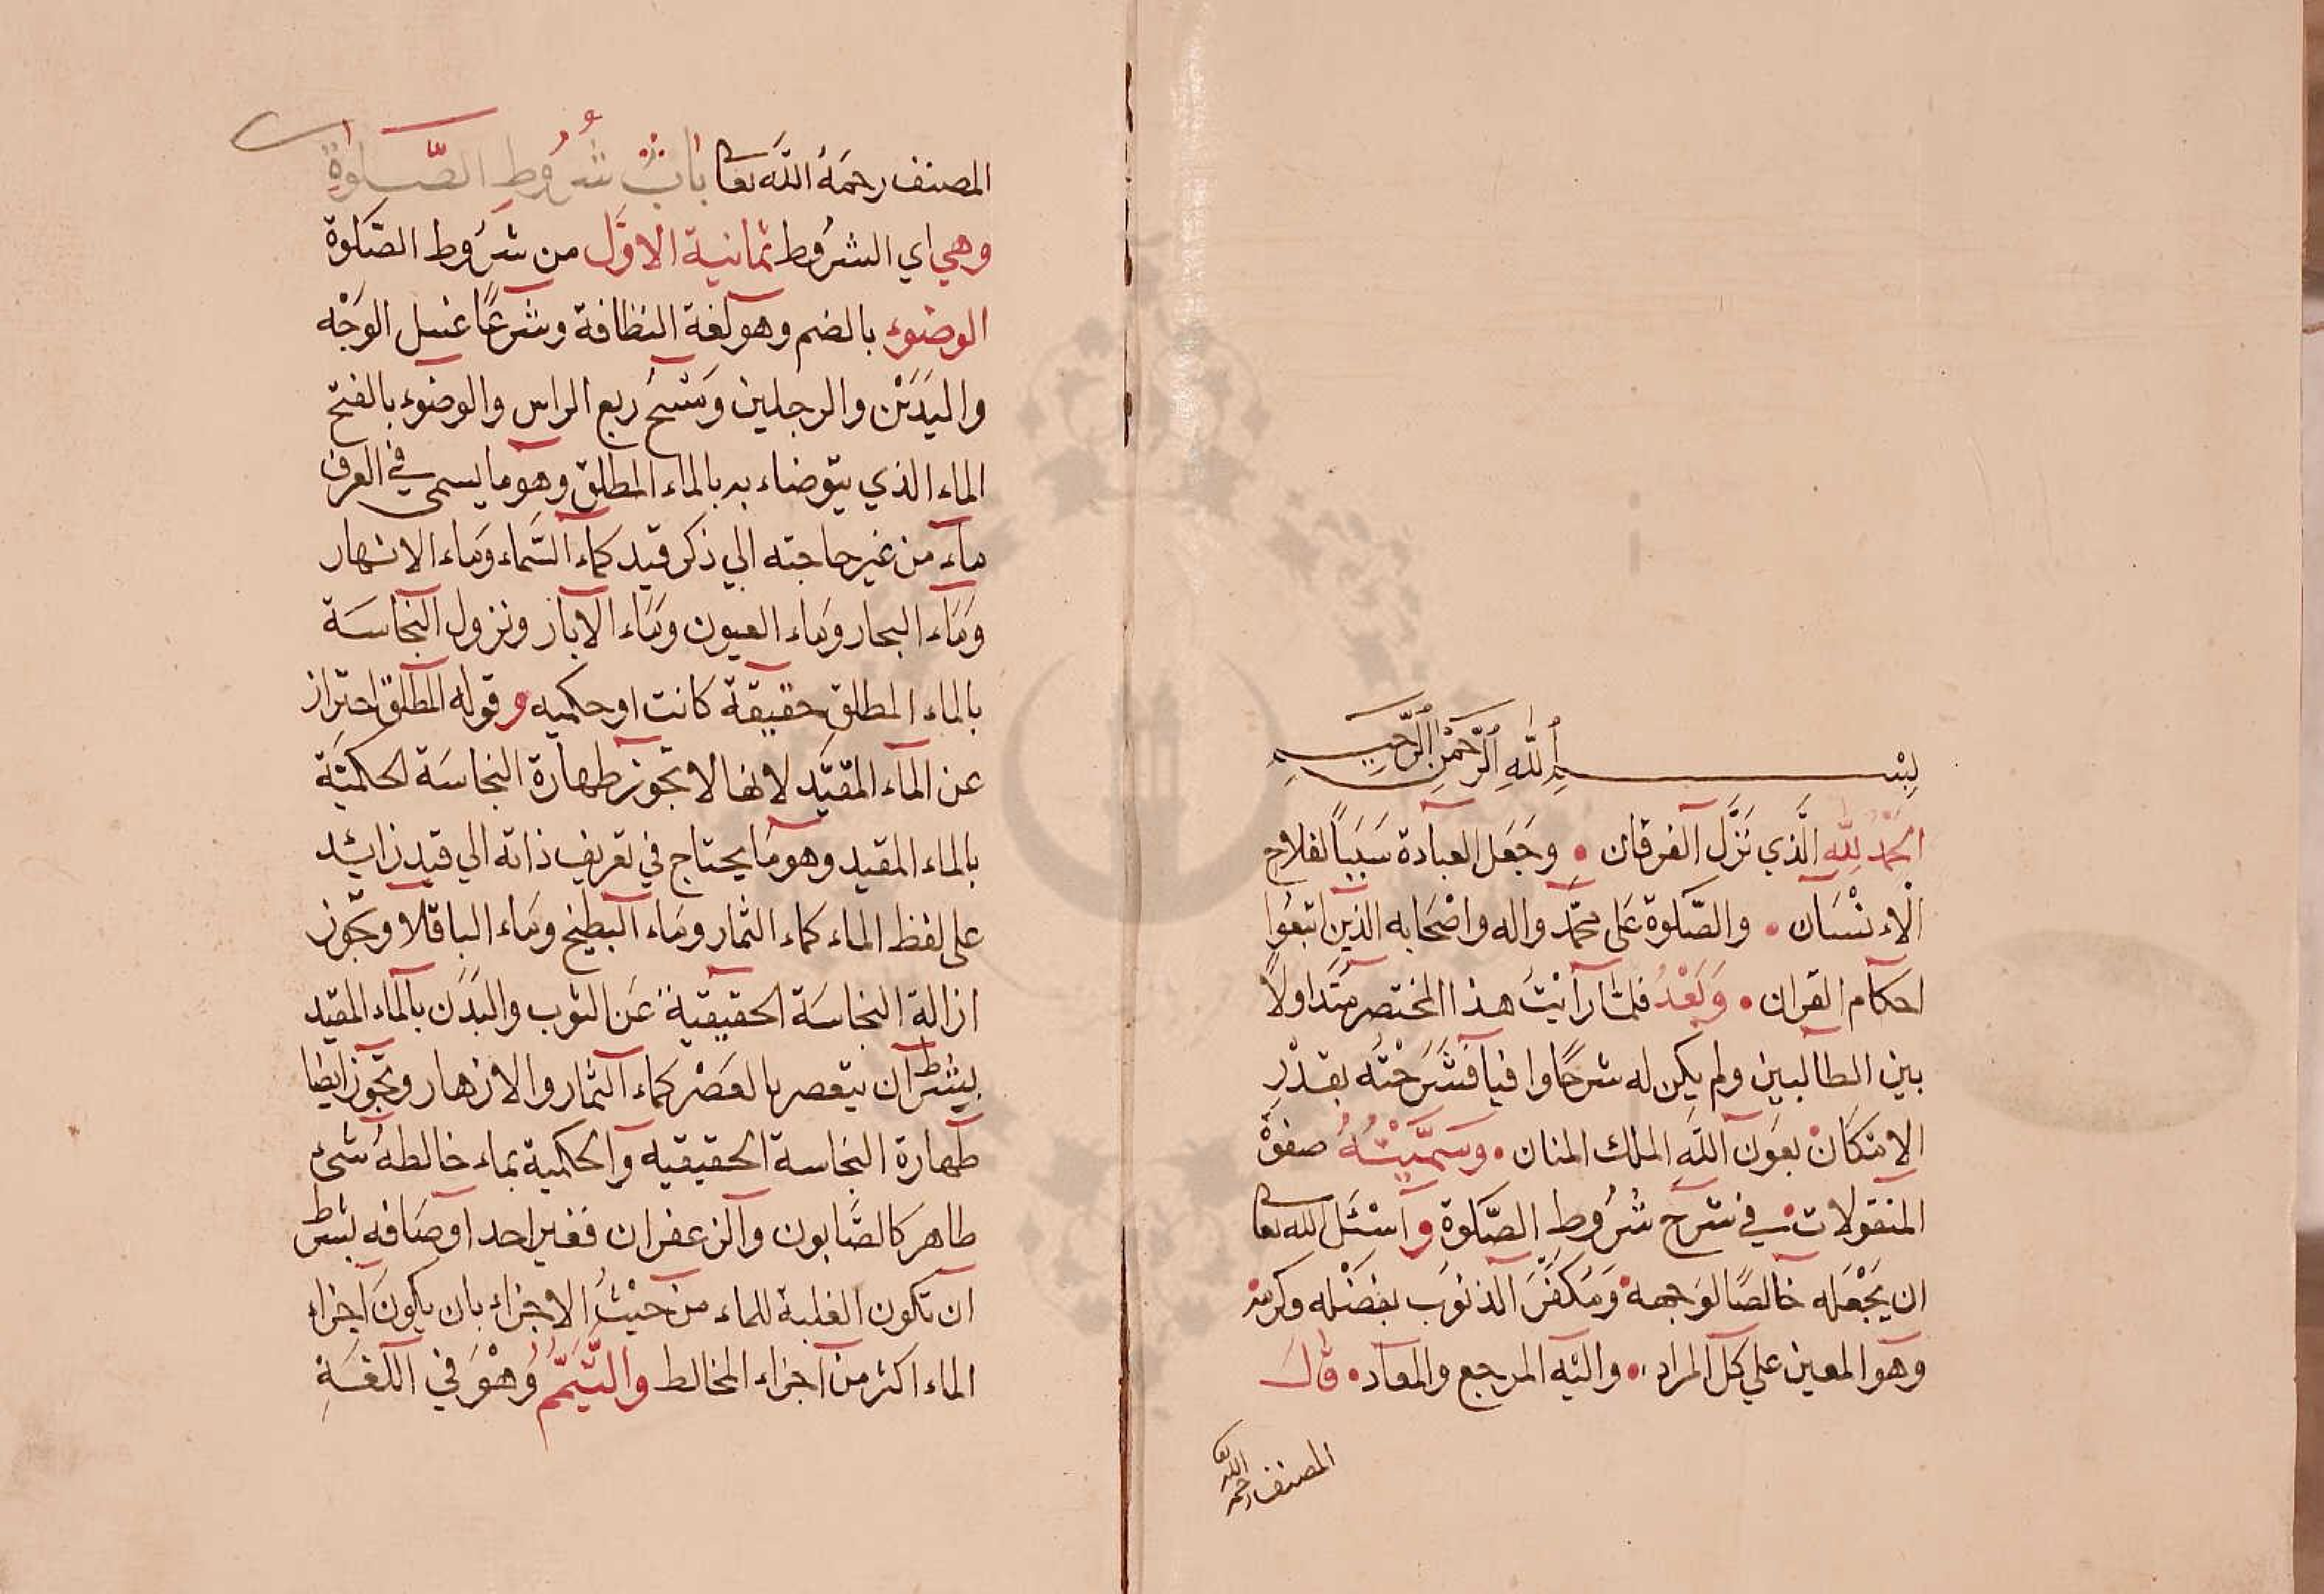 بِسْمِ اللهِ الرَّحْمٰنِ الرَّحِيمِ
الحَمْدُ لِلّٰهِ الَّذي نَزَّلَ الفرقان • وجَعَل العبادة سَبَبًا لفلاح
الْاِنْسَان • والصَّلوة عَلى محمَّد واله واصْحَابه الذين اتبعَوا
احكام القران • وَبَعْدُ فلمَّا رَاَيْتُ هذا المختصر مُتَداولًا
بين الطالبين ولم يكن له شرحًا وافيا فَشَرَحْتُه بقدْرِ
الامْكَان بعَون اللّه الملك المنان • وَسَمَّيْتُهُ صفوةْ
المنقولات في شرح شرُوط الصَّلوة وَاسْئَل الله تعا
ان يَجْعَله خالصًا لوَجهه وَمُكفِّرَ الذنوَب بفضْله وكرمه
وهو المعين علي كل المراد • واليْه المرجع والمعاد • قال
المصنف رحمه الله تعا
المصنف رحمَهُ اللَّه تعا بَابُ شُرُوطِ الصَّلوةِ
وهي اي الشرُوط ثمانية الاوَّل من شرُوط الصَّلوة
الوضوء بالضم وهو لغة النظافة وشرعًا غسل الوَجْه
واليَدَيْن والرجلين وَمَسْحُ ربع الراس والوضوء بالفتح
الماء الذي يتوضاء به بالماء المطلق وهو ما يسمى في العرف
ماء من غير حاجته الي ذكر قيد كماء السَّماء وَماء الانهار
وَمَاء البحار وَماء العيون وَمَاء الابار ونزول النجاسَة
بالماء المطلق حقيقة كانت او حكميه و قوله المطلق احتراز
عن الماء المقيَّد لانها لا تجوز طهارة النجاسَة الحكميَّة
بالماء المقيد وهو مَا يحتاج في تعريف ذاته الي قيد زائد
على لفظ الماء كماء الثمار وَماء البطيخ وَماء الباقلا وتجوز
ازالة النجاسَة الحقيقية عَن الثوب والبَدَن بالماء المقيد
بشرط ان يتعصر بالعَصْر كماء الثمار والازهار وتجوز ايضا
طهارة النجاسة الحقيقيه والحكمية بماء خالطهُ شئ
طاهر كالصَّابون والزعفران فغير احد اوصَافه بشرط
ان تكون الغلبة للماء من حيْثُ الاجزاء بان يكونَ اجزاء
الماء اكثر من اجزاء المخالط والتَّيَمُّمُ وَهْوَ في اللغَةِ